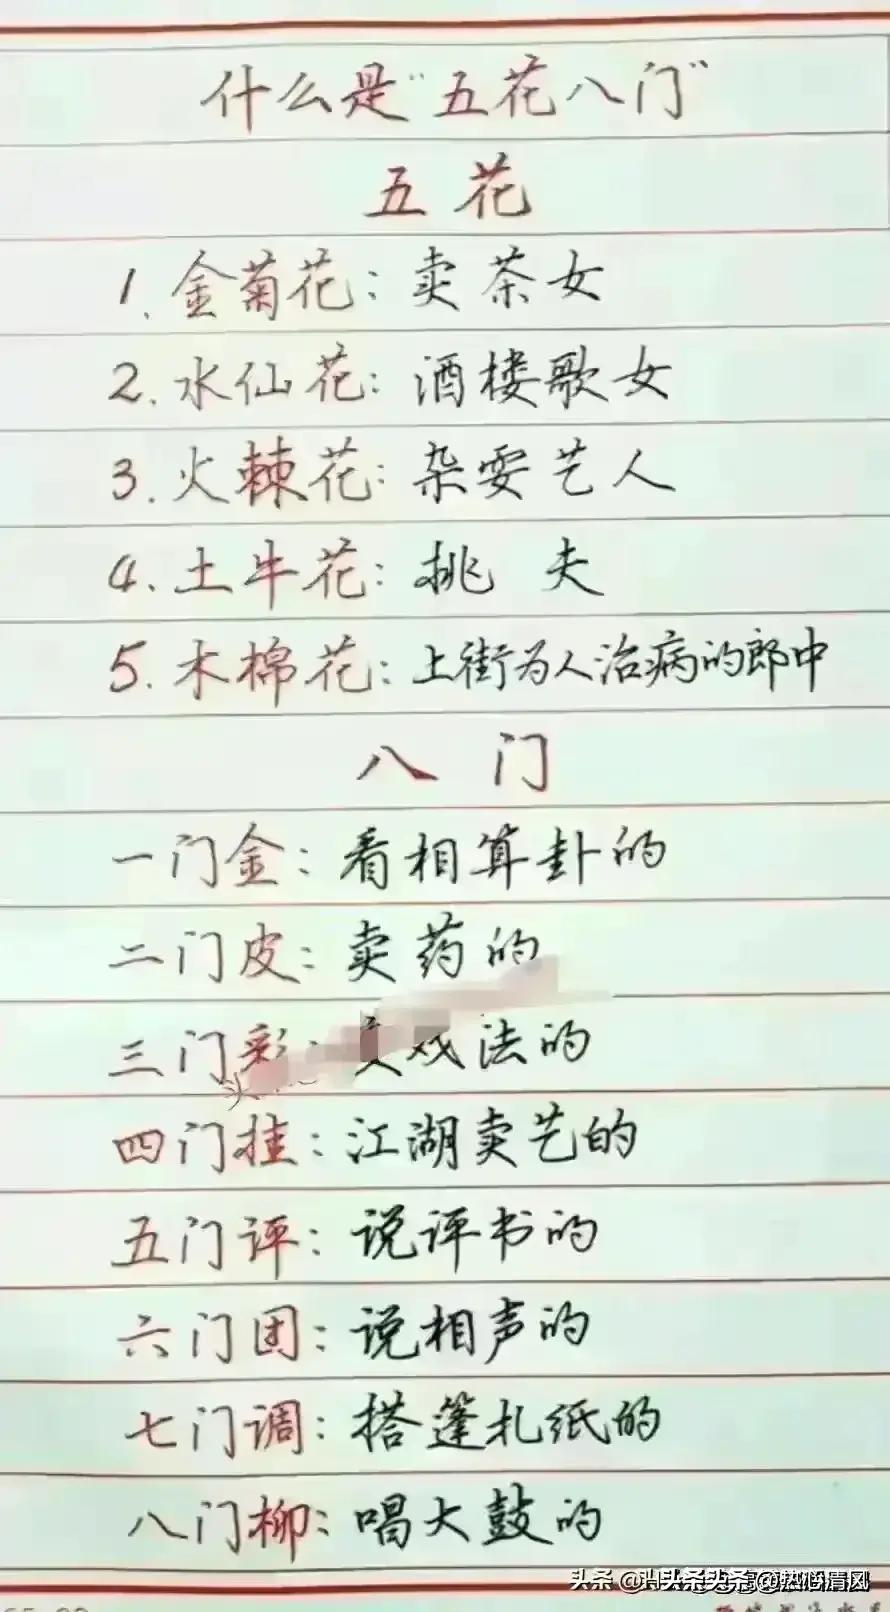 什么是"五花八门"
五花
1.金菊花：卖茶女
2.水仙花：酒楼歌女
3.火棘花：杂耍艺人
4.土牛花：挑夫
5.木棉花：上街为人治病的郎中
八门
一门金：看相算卦的
二门皮：卖药的
三门彩：戏法的
四门挂：江湖卖艺的
五门评：说评书的
六门团：说相声的
七门调：搭篷扎纸的
八门柳：唱大鼓的
头条 @热心清风